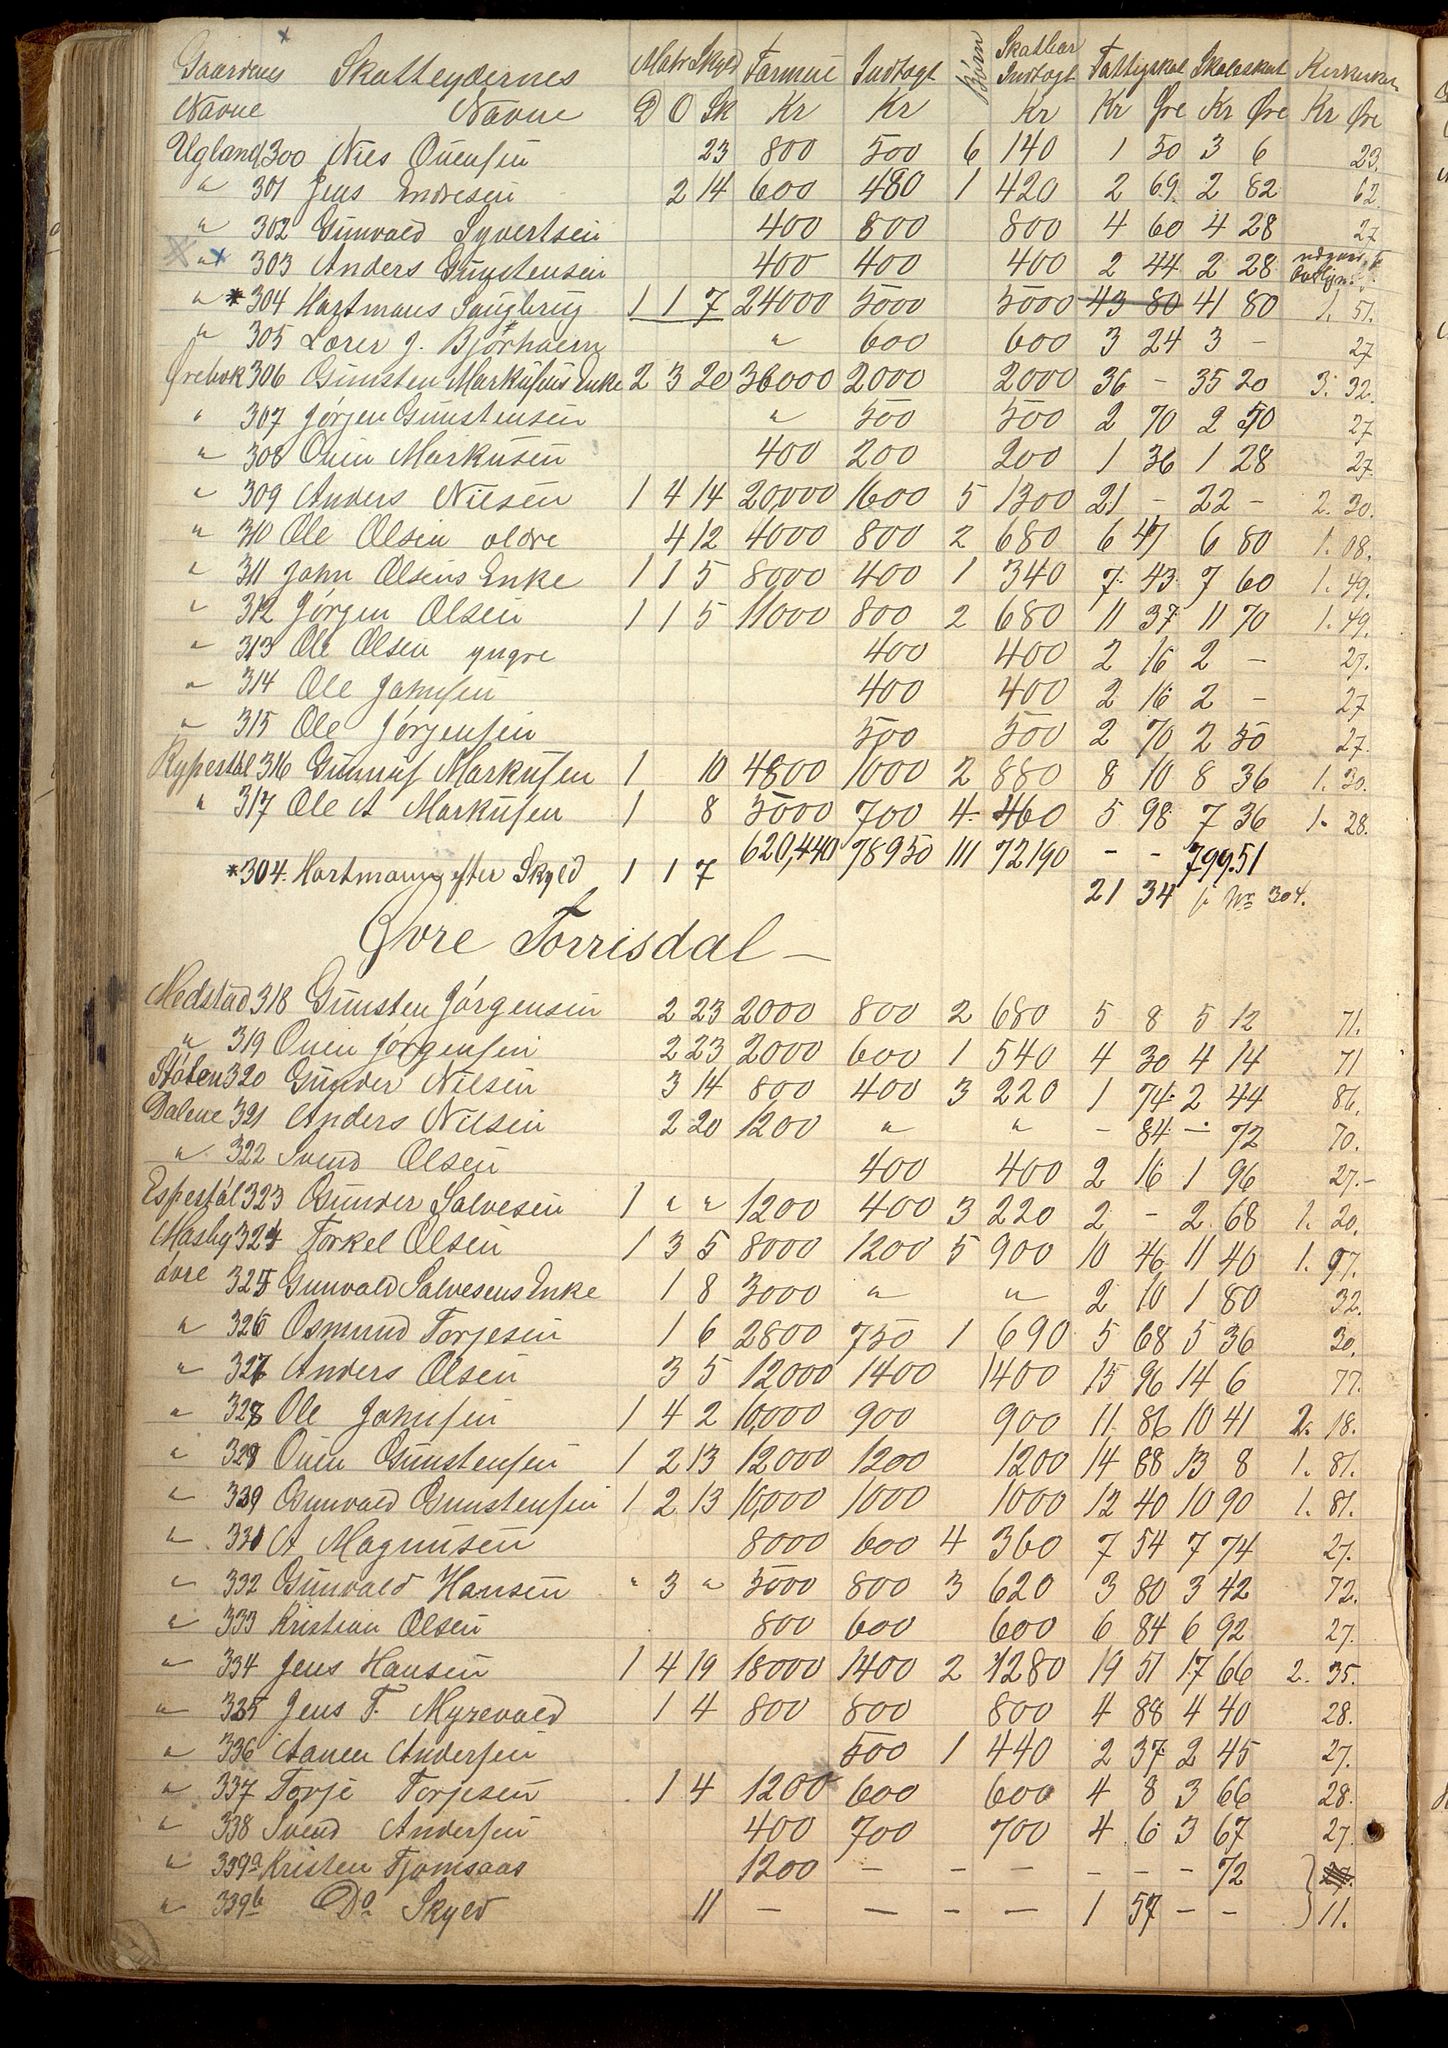 Gaardenes Skatteydernes Matr Skyld Formue Indtægt Børn Skatbar Indtægt Fattigskat Skoleskat Kirkeskat
Navne Navne D O Sk Kr Kr Kr Kr Øre Kr Øre Kr Øre
Ugland 300 Nils Ouensen 23 800 500 6 140 1 50 3 6 23.
" 301 Jens Endresen 2 14 600 480 1 420 2 69 2 82 62
" 302 Gunvald Syvertsen 400 800 800 4 60 4 28 27
" 303 Anders Gunstensen 400 400 400 2 44 2 28
" *304 Hartmans Saugbrug 1 1 7 24000 5000 5000 43 80 41 80 1. 51.
" 305 Lærer J. Bjørhaem " 600 600 3 24 3 – 27
Ørebæk 306 Gunsten Markusens Enke 2 3 20 36000 2000 2000 36 – 35 20 3. 32.
" 307 Jørgen Gunstensen " 500 500 2 70 2 50 27
" 308 Ouen Markusen 400 200 200 1 36 1 28 27
" 309 Anders Nilsen 1 4 14 20,000 1600 5 1300 21 – 22 – 2. 30.
" 310 Ole Olsen ældre 4 12 4000 800 2 680 6 47 6 80 1. 08.
" 311 John Olsens Enke 1 1 5 8000 400 1 340 7 43 7 60 1. 49.
" 312 Jørgen Olsen 1 1 5 11000 800 2 680 11 37 11 70 1. 49.
" 313 Ole Olsen yngre 400 400 2 16 2 – 27.
" 314 Ole Johnsen 400 400 2 16 2 – 27
" 315 Ole Jørgensen 500 500 2 70 2 50 27.
Rypestøl 316 Gunnuf Markusen 1 10 4800 1000 2 880 8 10 8 36 1. 30.
" 317 Ole A Markusen 1 8 5000 700 4 460 5 98 7 36 1. 28.
620,440 78950 111 72190 – – 799.51
*304. Hartmann efter Skyld 1 1 7 21 34 f. No 304.
Øvre Torrisdal –
Nedstad 318 Gunsten Jørgensen 2 23 2000 800 2 680 5 8 5 12 71.
" 319 Ouen Jørgensen 2 23 2000 600 1 540 4 30 4 14 71
Støten 320 Gunder Nilsen 3 14 800 400 3 220 1 74 2 44 86.
Dalene 321 Anders Nilsen 2 20 1200 " " – 84 – 72 70.
" 322 Svend Olsen 400 400 2 16 1 96 27.–
Espestøl 323 Gunder Salvesen 1 " " 1200 400 3 220 2 – 2 68 1. 20.
Mosby 324 Torkel Olsen 1 3 5 8000 1200 5 900 10 46 11 40 1. 97.
øvre 325 Gunvald Salvesens Enke 1 8 3000 " " 2 10 1 80 32.
" 326 Osmund Torjesen 1 6 2800 750 1 690 5 68 5 36 30.
" 327 Anders Olsen 3 5 12000 1400 1400 15 96 14 6 77.
" 328 Ole Johnsen 1 4 2 10,000 900 900 11 86 10 41 2. 18.
" 329 Ouen Gunstensen 1 2 13 12000 1200 1200 14 88 13 8 1. 81.
" 330 Gunvald Gunstensen 1 2 13 10,000 1000 1000 12 40 10 90 1. 81.
" 331 A Magnusen 8000 600 4 360 7 54 7 74 27.
" 332 Gunvald Hansen " 3 " 5000 800 3 620 3 80 3 42 72.
" 333 Kristian Olsen 800 600 600 6 84 6 92 27.
" 334 Jens Hansen 1 4 19 18000 1400 2 1280 19 51 17 66 2. 35.
" 335 Jens T. Myrevold 1 4 800 800 800 4 88 4 40 28.
" 336 Aanen Andersen 500 1 440 2 37 2 45 27.
" 337 Torje Torjesen 1 4 1200 600 600 4 8 3 66 28.
" 338 Svend Andersen 400 700 700 4 6 3 67 27.
" 339a Kristen Tjomsaas 1200 – – – – – – 72
" 339b Do Skyld 11 – – – – 1 57 – – 11.